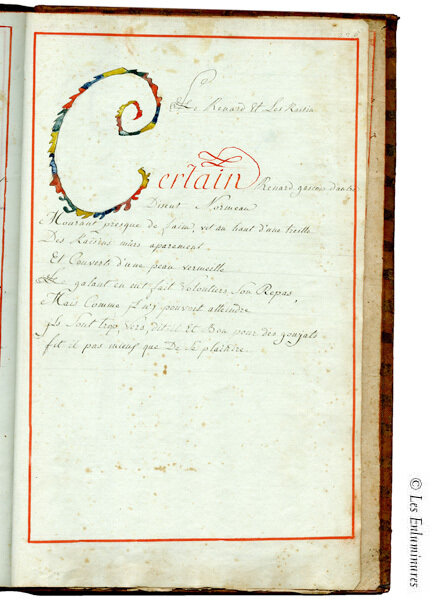 Le Renard Et Les Raisin
Certain Renard gascon d'autre
Disent Normeau
Mourant presque de faim, vit au haut d'une treille
Des Raisins murs aparement
Et Couverts d'une peau vermeille
Le galant en eut fait voloutiers Son Repas,
Mais Comme il n'y pouvoit atteindre
Ils Sont trop vers, dit il Et Bon pour des goujats
fit il pas mieux que De Se plaindre
© Les Enluminures